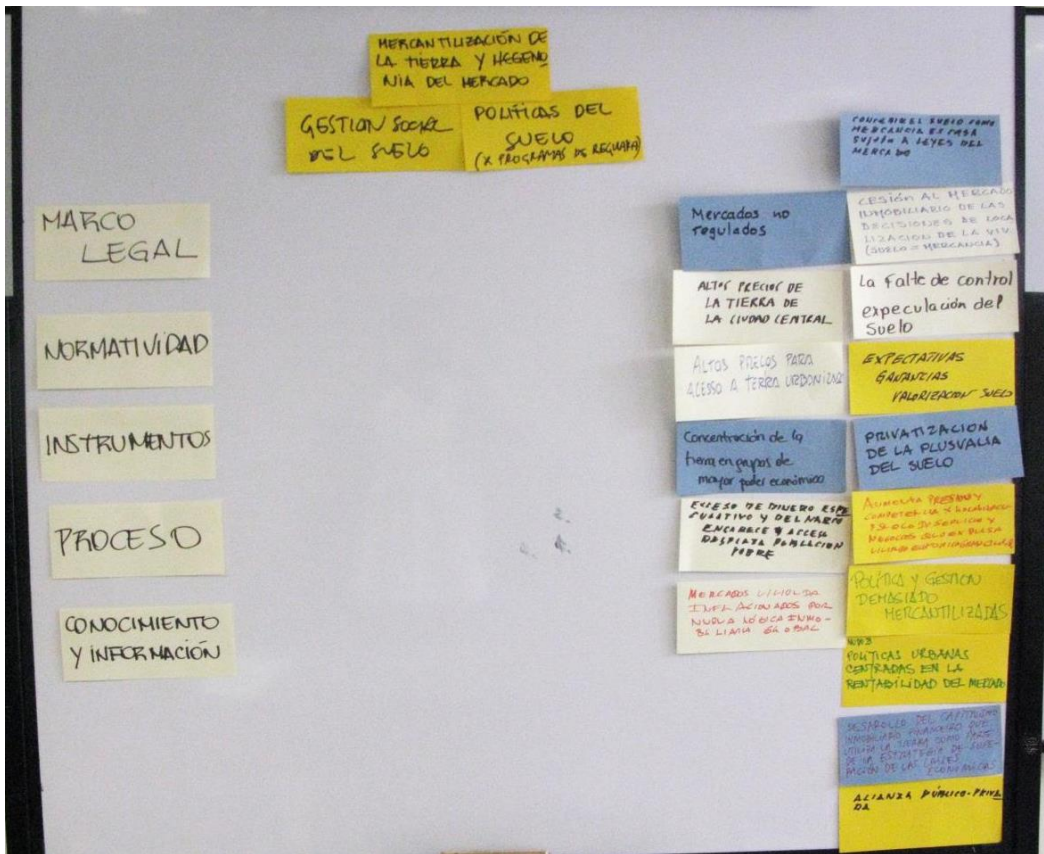 MERCANTILIZACIÓN DE
LA TIERRA Y HEGEMO
NIA DEL MERCADO
GESTION SOCIAL
DEL SUELO
POLÍTICAS DEL
SUELO
(X PROGRAMAS DE REGULARA)
MARCO
LEGAL
NORMATIVIDAD
INSTRUMENTOS
PROCESO
CONOCIMIENTO
Y INFORMACIÓN
Mercados no
regulados
ALTOS PRECIOS DE
LA TIERRA DE
LA CIUDAD CENTRAL
ALTOS PREÇOS PARA
ACESSO A TERRA URBANIZADA
Concentración de la
tierra en grupos de
mayor poder económico
EXCESO DE DINERO ESPE
CULATIVO Y DEL NARCO
ENCARECE Y ACCESO
DESPLAZA POBLACION
POBRE
MERCADOS
INFLACIONADOS POR
NUEVA LÓGICA INMO-
BILIARIA GLOBAL
CONCEBIR EL SUELO COMO
MERCANCIA
SUJETA A LEYES DEL
MERCADO
CESIÓN AL MERCADO
INMOBILIARIO DE LAS
DECISIONES DE LOCA
LIZACION DE LA VIV
(SUELO = MERCANCIA)
La falte de control
expeculación del
Suelo
EXPECTATIVAS
GANANCIAS
VALORIZACION SUELO
PRIVATIZACION
DE LA PLUSVALIA
DEL SUELO
AUMENTA PRESION Y
COMPETENCIA
NEGOCIOS
POLÍTICA Y GESTION
DEMASIADO
MERCANTILIZADAS
POLÍTICAS URBANAS
CENTRADAS EN LA
RENTABILIDAD DEL MERCADO
DESAROLLO DEL CAPITALISMO
INMOBILIARIO FINANCIERO QUE
UTILIZA LA TIERRA COMO PARTE
DE LA ESTRATEGIA DE SUPE-
RACIÓN DE LAS CRISES
ECONÓMICAS
ALIANZA PÚBLICO-PRIVA
DA